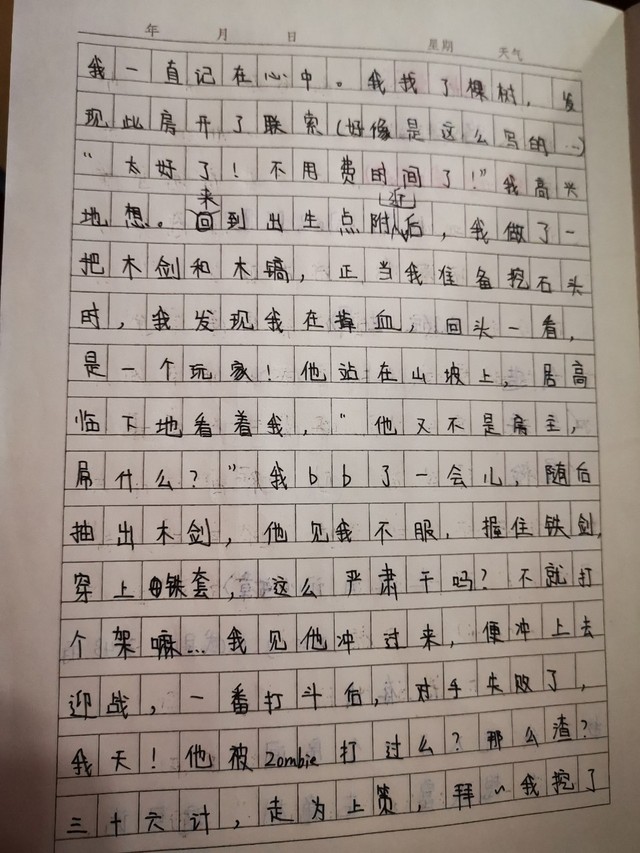 年 月 日 星期 天气
我一直记在心中。我找了棵树，发
现此房开了联索(好像是这么写的…)
“太好了！不用费时间了！”我高兴
地想。回来到出生点附近后，我做了一
把木剑和木镐，正当我准备挖石头
时，我发现我在掉血，回头一看，
是一个玩家！他站在山坡上，居高
临下地看着我，“他又不是房主，
屌什么？”我bb了一会儿，随后
抽出木剑，他见我不服，握住铁剑，
穿上铁套，这么严肃干吗？不就打
个架嘛…我见他冲过来，便冲上去
迎战，一番打斗后，对手失败了，
我天！他被Zombie打过么？那么渣？
三十六计，走为上策，拜~我挖了